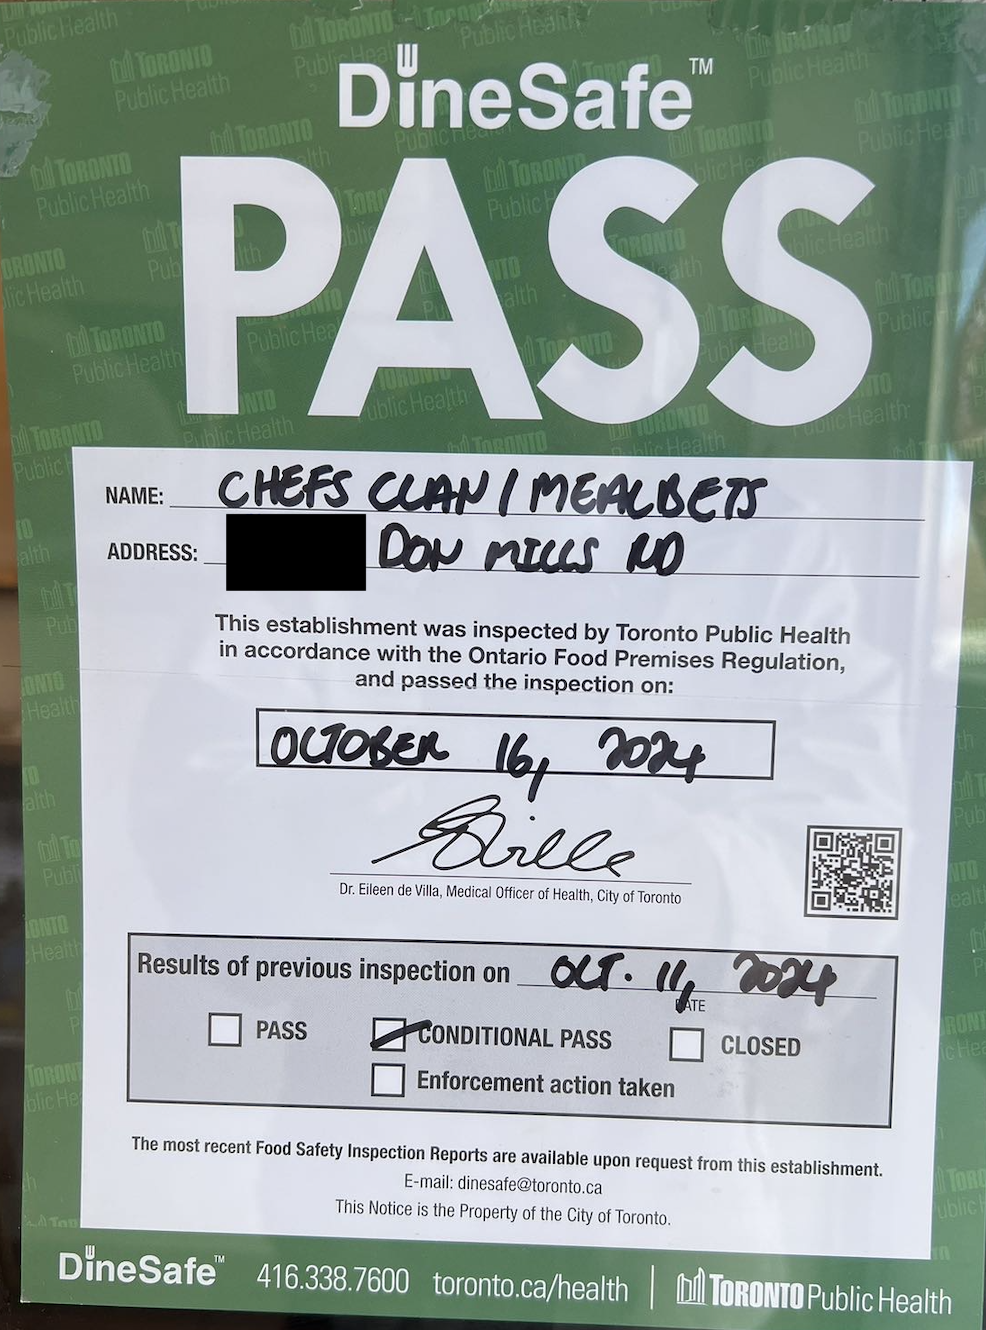 DineSafe™
PASS
NAME: CHEFS CLAN / MEALBETS
ADDRESS: DON MILLS RD
This establishment was inspected by Toronto Public Health
in accordance with the Ontario Food Premises Regulation,
and passed the inspection on:
OCTOBER 16, 2024
Dr. Eileen de Villa, Medical Officer of Health, City of Toronto
Results of previous inspection on OCT. 11, 2024
DATE
PASS CONDITIONAL PASS CLOSED
Enforcement action taken
The most recent Food Safety Inspection Reports are available upon request from this establishment.
E-mail: dinesafe@toronto.ca
This Notice is the Property of the City of Toronto.
DineSafe™ 416.338.7600 toronto.ca/health | TORONTO Public Health